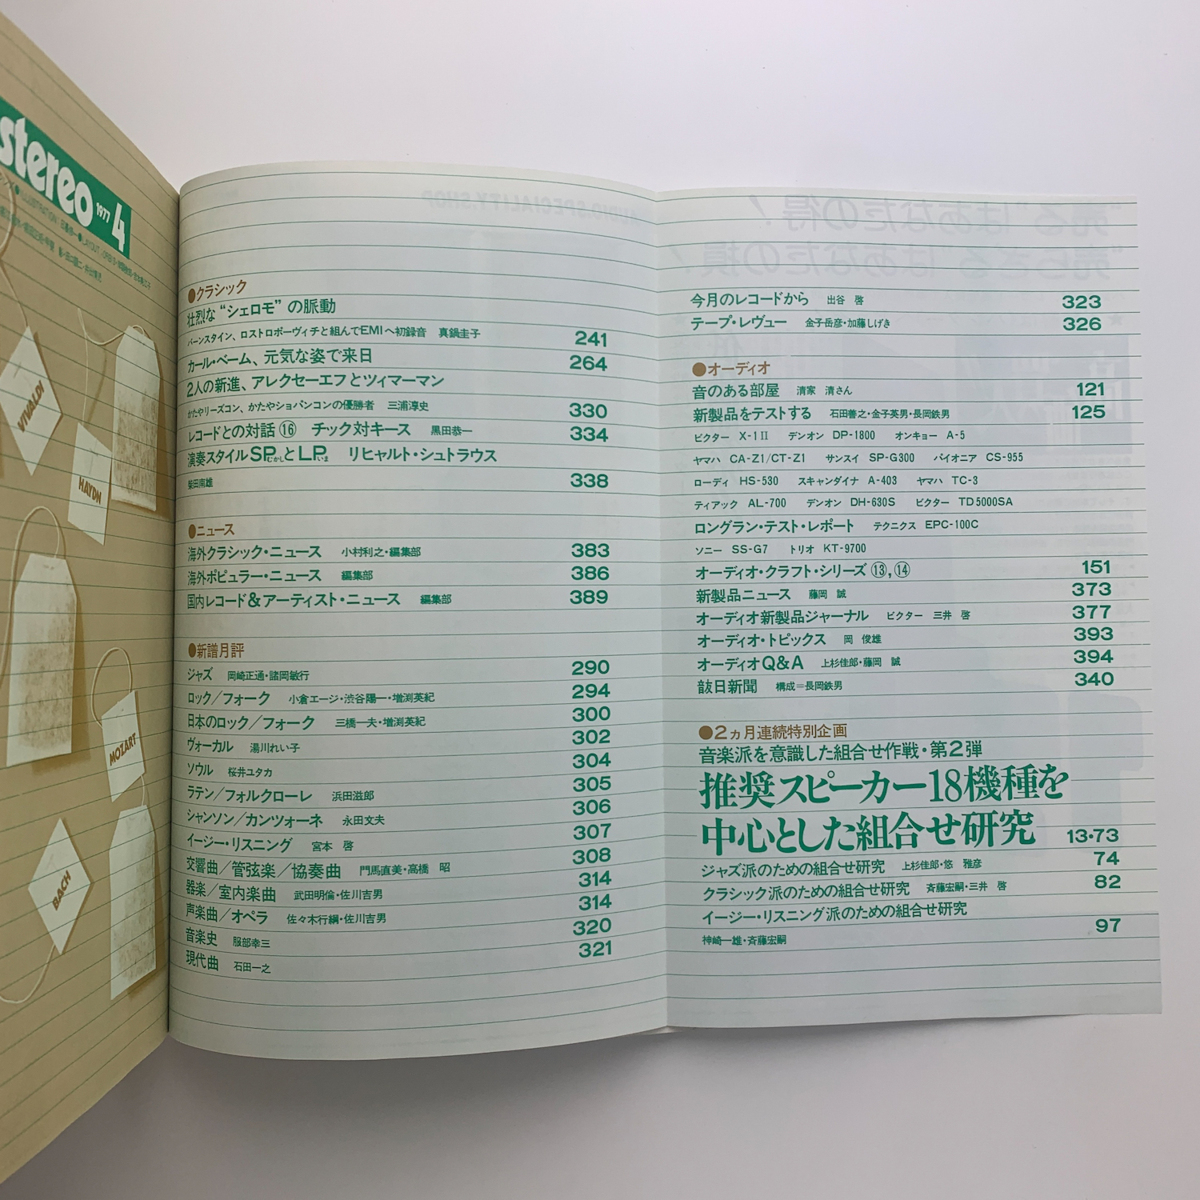 stereo
1977 4
VIVALDI
HAYDN
MOZART
BACH
●クラシック
壮烈な“シェロモ”の脈動
バーンスタイン、ロストロポーヴィチと組んでEMIへ初録音 真鍋圭子 241
カール・ベーム、元気な姿で来日 264
2人の新進、アレクセーエフとツィマーマン
かたやリーズコン、かたやショパンコンの優勝者 三浦淳史 330
レコードとの対話⑯ チック対キース 黒田恭一 334
演奏スタイルSPむかしとLPいま リヒャルト・シュトラウス
柴田南雄 338
●ニュース
海外クラシック・ニュース 小村利之・編集部 383
海外ポピュラー・ニュース 編集部 386
国内レコード&アーティスト・ニュース 編集部 389
●新譜月評
ジャズ 岡崎正通・諸岡敏行 290
ロック/フォーク 小倉エージ・渋谷陽一・増渕英紀 294
日本のロック/フォーク 三橋一夫・増渕英紀 300
ヴォーカル 湯川れい子 302
ソウル 桜井ユタカ 304
ラテン/フォルクローレ 浜田滋郎 305
シャンソン/カンツォーネ 永田文夫 306
イージー・リスニング 宮本 啓 307
交響曲/管弦楽/協奏曲 門馬直美・高橋 昭 308
器楽/室内楽曲 武田明倫・佐川吉男 314
声楽曲/オペラ 佐々木行綱・佐川吉男 314
音楽史 服部幸三 320
現代曲 石田一之 321
今月のレコードから 出谷 啓 323
テープ・レヴュー 金子岳彦・加藤しげき 326
●オーディオ
音のある部屋 清家 清さん 121
新製品をテストする 石田善之・金子英男・長岡鉄男 125
ビクター X-1II デンオン DP-1800 オンキョー A-5
ヤマハ CA-Z1/CT-Z1 サンスイ SP-G300 パイオニア CS-955
ローディ HS-530 スキャンダイナ A-403 ヤマハ TC-3
ティアック AL-700 デンオン DH-630S ビクター TD5000SA
ロングラン・テスト・レポート テクニクス EPC-100C
ソニー SS-G7 トリオ KT-9700
オーディオ・クラフト・シリーズ⑬,⑭ 151
新製品ニュース 藤岡 誠 373
オーディオ新製品ジャーナル ビクター 三井 啓 377
オーディオ・トピックス 岡 俊雄 393
オーディオQ&A 上杉佳郎・藤岡 誠 394
詃日新聞 構成=長岡鉄男 340
●2ヵ月連続特別企画
音楽派を意識した組合せ作戦・第2弾
推奨スピーカー18機種を
中心とした組合せ研究 13・73
ジャズ派のための組合せ研究 上杉佳郎・悠 雅彦 74
クラシック派のための組合せ研究 斉藤宏嗣・三井 啓 82
イージー・リスニング派のための組合せ研究
神崎一雄・斉藤宏嗣 97